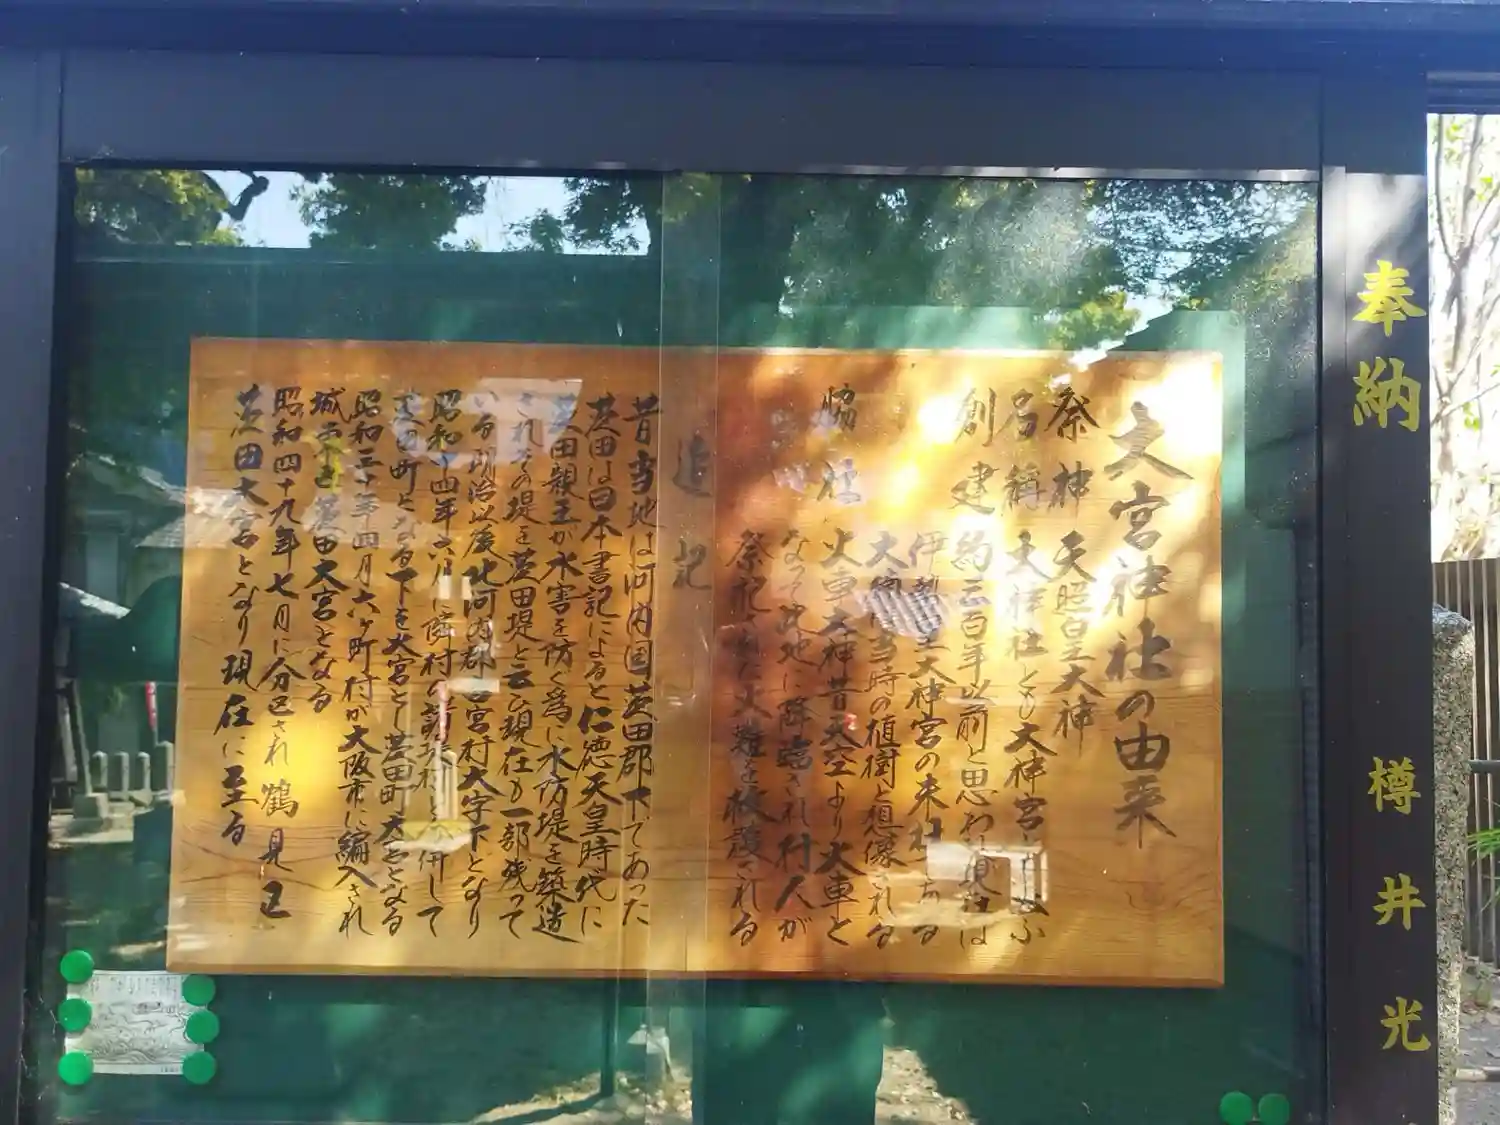 大宮神社の由来
祭神 天照皇大神
名稱 大神社とも大神宮とも云ふ
創建 約三百年以前と思わ現は
伊勢皇大神宮の末社である
大樟は当時の植樹と想像される
脇社 火車大神昔天空より火車と
なって此地に降臨され村人が
祭祀された火難を救護される
追記
昔当地は河内国茨田郡下であった
茨田は日本書記によると仁徳天皇時代に
茨田親王が水害を防ぐ為に水防堤を築造
されその堤を茨田堤と云ひ現在も一部残って
いる明治以後北河内郡二宮村大字下となり
昭和十四年六月に隣村の諸坂村と合併して
茨田町になる下を大宮とし茨田町大宮となる
昭和三十年四月六ヶ町村が大阪市に編入され
城東区茨田大宮となる
昭和四十九年七月に分区され鶴見区
茨田大宮となり現在に至る
奉納
樽井光